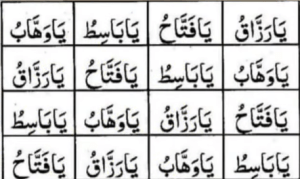 يَارَزَّاقُ يَافَتَّاحُ يَابَاسِطُ يَاوَهَّابُ
يَاوَهَّابُ يَابَاسِطُ يَافَتَّاحُ يَارَزَّاقُ
يَافَتَّاحُ يَارَزَّاقُ يَاوَهَّابُ يَابَاسِطُ
يَابَاسِطُ يَاوَهَّابُ يَارَزَّاقُ يَافَتَّاحُ